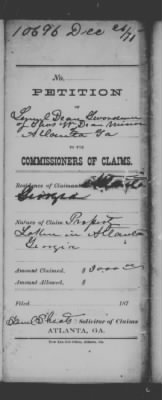 10696 Dec 26/71
No.
PETITION
OF
Lemuel Dean Guardian
of Thos W. Dean minor
Atlanta Ga
TO THE
COMMISSIONERS OF CLAIMS.
Residence of Claimant
Georgia
Nature of Claim Property
taken in Atlanta
Georgia
Amount Claimed, $
Amount Allowed, $
Filed 187
Solicitor of Claims
ATLANTA, GA.